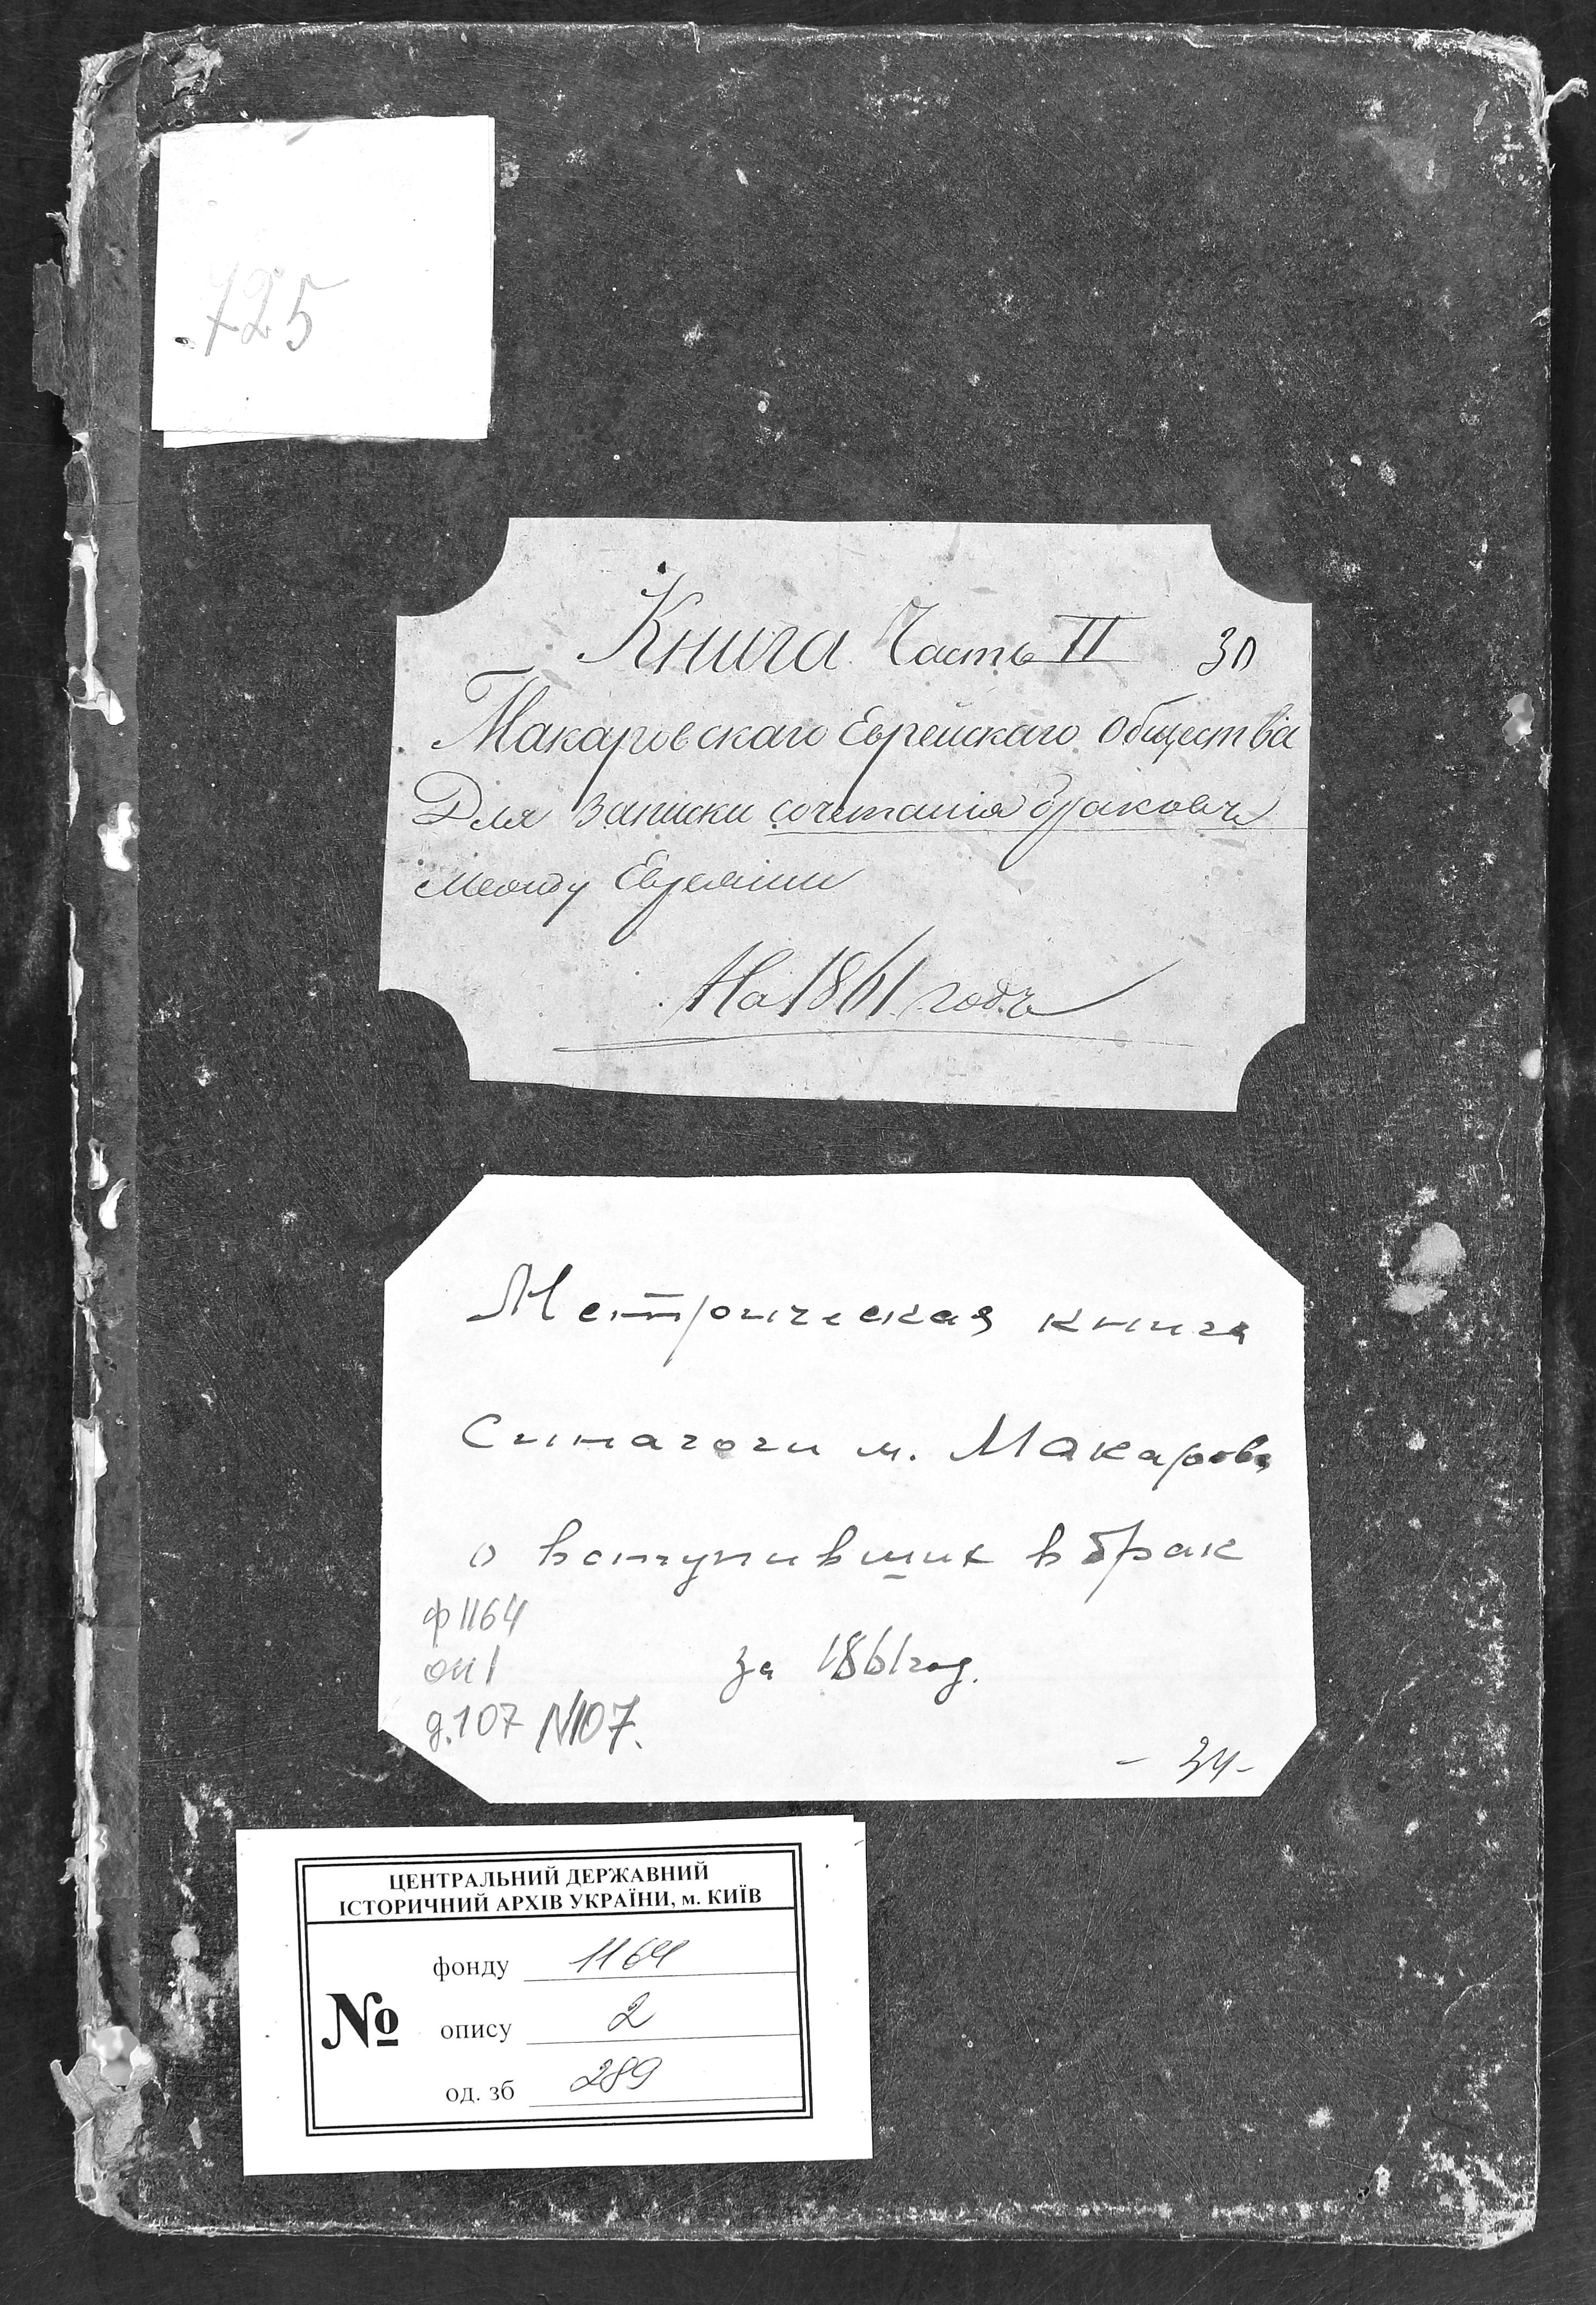 725
Книга Часть II 30
Макаровскаго Еврейскаго Общества
Для записки сочетанія браковъ
между Евреями
На 1861 годъ
Метрическая книга
Синагоги м. Макарова
о вступивших в брак
ф 1164
оп 1
за 1861 год.
д. 107 N107.
- 34 -
ЦЕНТРАЛЬНИЙ ДЕРЖАВНИЙ
ІСТОРИЧНИЙ АРХІВ УКРАЇНИ, м. КИЇВ
фонду 1164
№ опису 2
од. зб 289